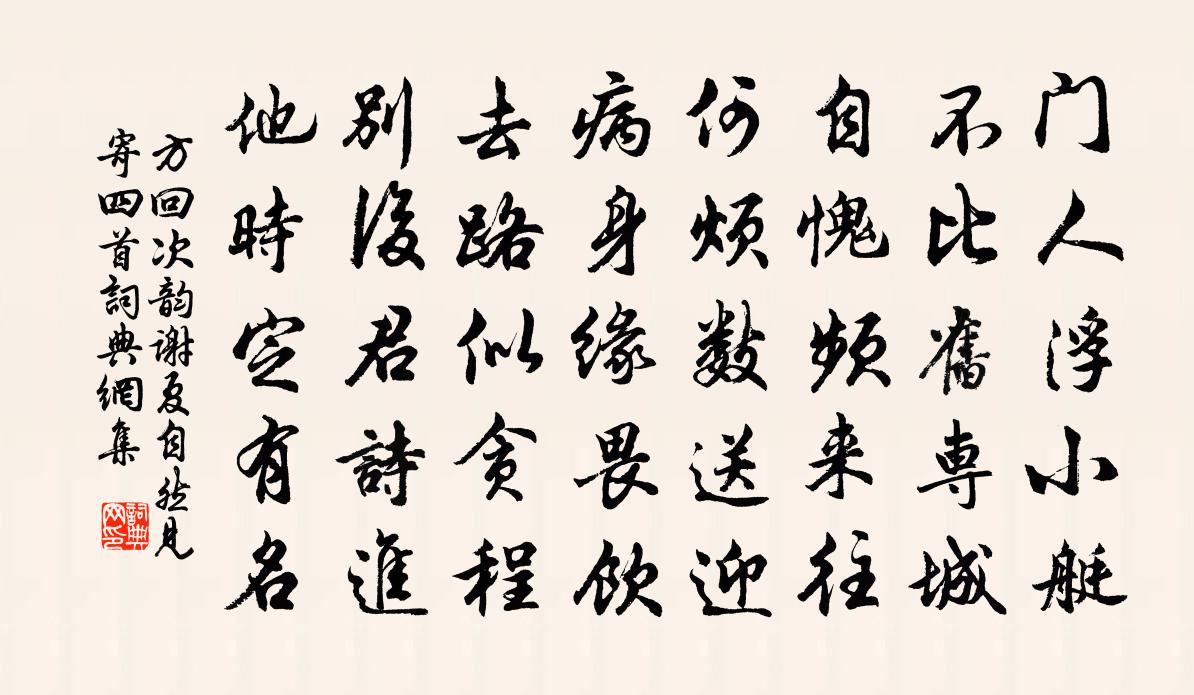 门人浮小艇
不比舊専城
自愧頻来往
何煩數送迎
病身缘畏飲
去路似贪程
別後君詩進
他時定有名
方回次韵谢夏自然見
寄四首詞典網集
詞典
网印